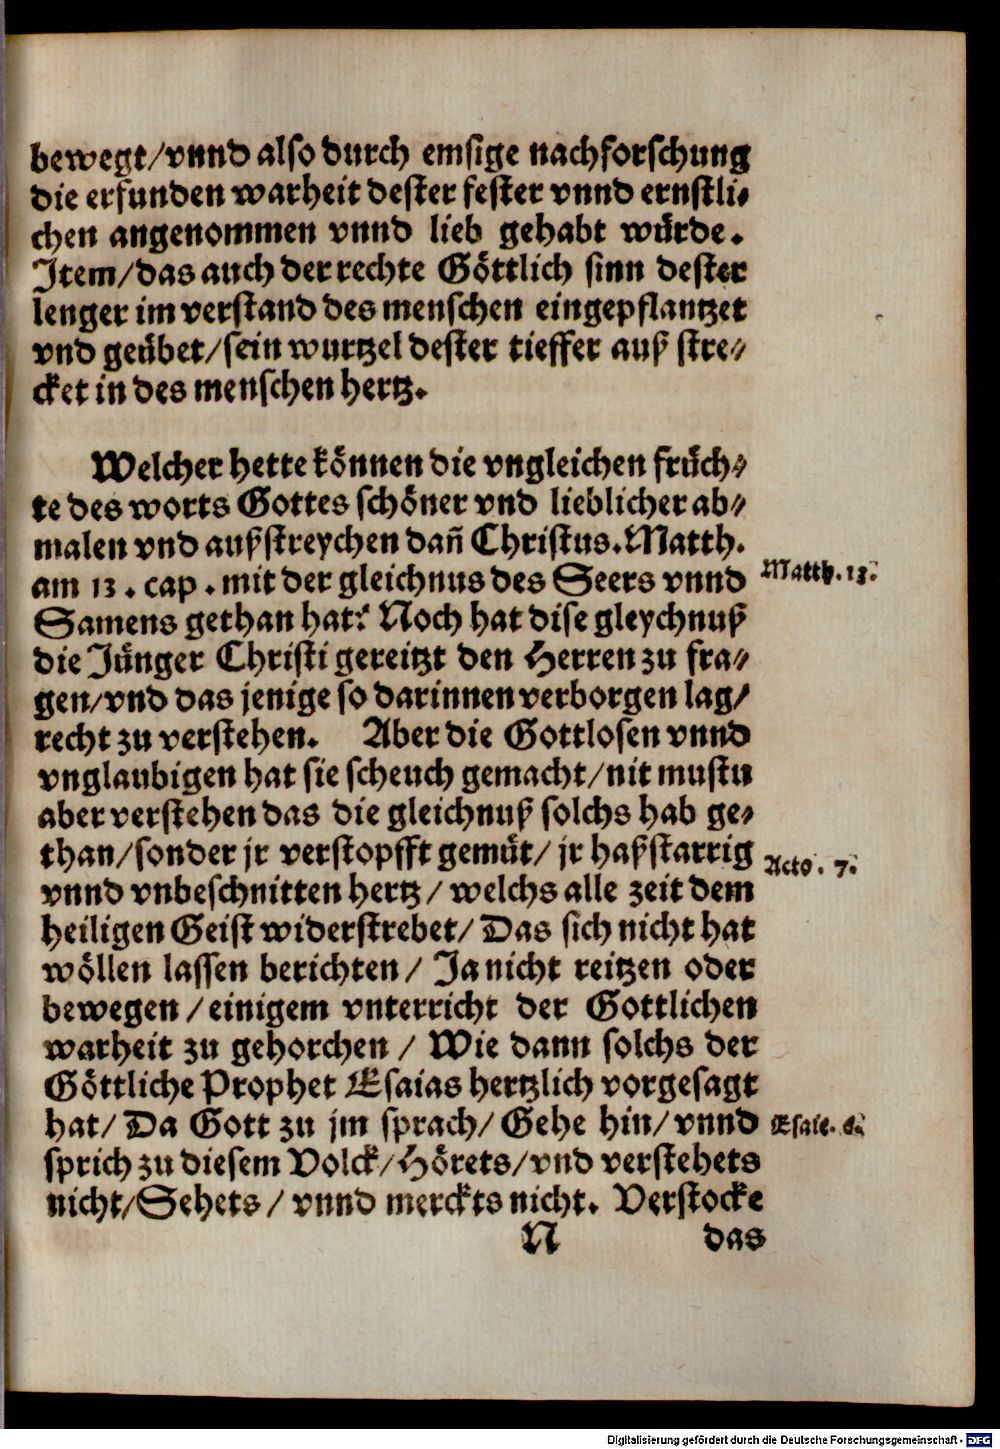 bewegt/vnnd also durch emsige nachforschung
die erfunden warheit dester fester vnnd ernstli⸗
chen angenommen vnnd lieb gehabt würde.
Item/das auch der rechte Göttlich sinn dester
lenger im verstand des menschen eingepflantzet
vnd geübet/sein wurtzel dester tieffer auß stre⸗
cket in des menschen hertz.
Welcher hette können die vngleichen früch⸗
te des worts Gottes schöner vnd lieblicher ab⸗
malen vnd außstreychen dañ Christus. Matth.
am 13. cap. mit der gleichnus des Seers vnnd
Matth. 13.
Samens gethan hat? Noch hat dise gleychnuß
die Jünger Christi gereitzt den Herren zu fra⸗
gen/vnd das jenige so darinnen verborgen lag/
recht zu verstehen. Aber die Gottlosen vnnd
vnglaubigen hat sie scheuch gemacht/nit mustu
aber verstehen das die gleichnuß solchs hab ge⸗
than/sonder jr verstopfft gemüt/ jr haßstarrig
Acto. 7.
vnnd vnbeschnitten hertz/ welchs alle zeit dem
heiligen Geist widerstrebet/ Das sich nicht hat
wöllen lassen berichten/ Ja nicht reitzen oder
bewegen/einigem vnterricht der Gottlichen
warheit zu gehorchen/ Wie dann solchs der
Göttliche Prophet Esaias hertzlich vorgesagt
hat/ Da Gott zu jm sprach/ Gehe hin/ vnnd
Esaie. 6.
sprich zu diesem Volck/Hörets/vnd verstehets
nicht/Sehets/ vnnd merckts nicht. Verstocke
N das
Digitalisierung gefördert durch die Deutsche Forschungsgemeinschaft - DFG